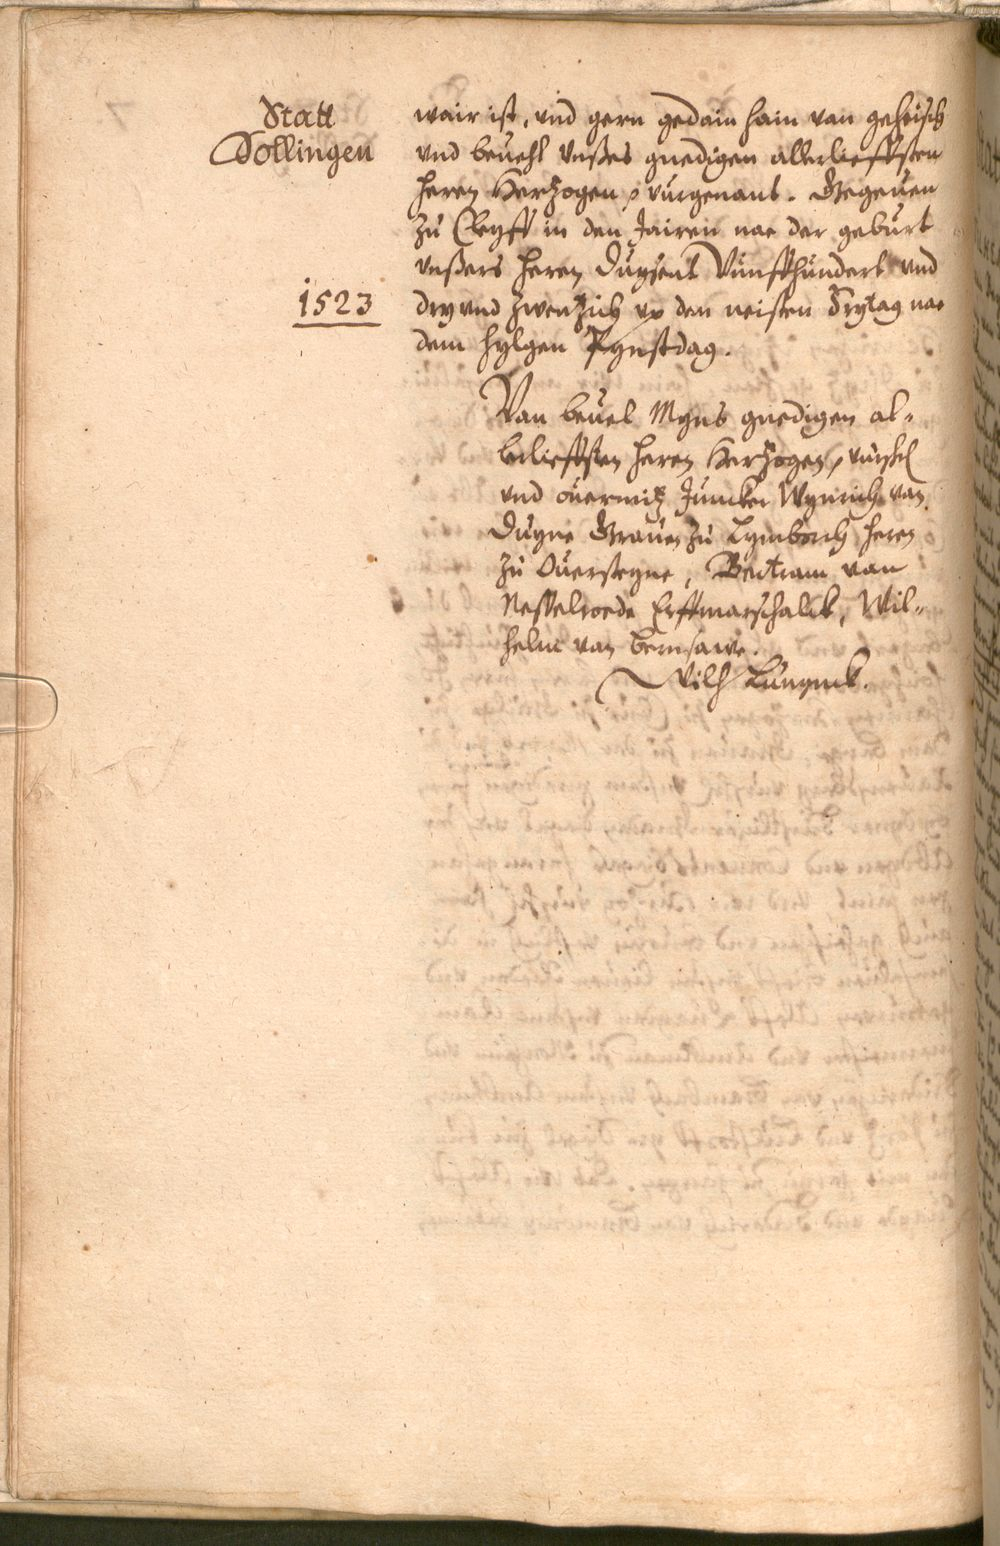 Statt
Sollingen
1523
wair ist, vnd gern gedain hain van geheisch
vnd beuehl vnßes gnedigen allerlieffsten
heren Hertzogen, vurgenant. Gegeuen
zu Cleyff in den Jairen nae der geburt
vnßers heren Duysent Vunffhundert vnd
dry vnd zwentzich vp den neisten Frytag nae
dem hylgen Pynstdag.
Van beuel Myns gnedigen al-
lerlieffsten heren Hertzogen, vurschl
vnd ouermitz Juncker Wynrich van
Duyne Grauen zu Lymburch heren
zu Ouersteyne, Bertram van
Nesselroede Erffmarschalck, Wil-
helm van Bernsawe.
Wilh Lunynck.